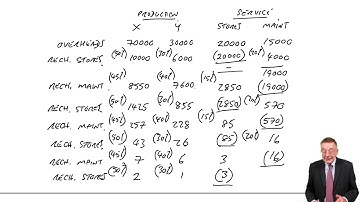 PRODUCTION SERVICE
X Y STORES MAINT
OVERHEADS 70000 30000 20000 15000
RECH. STORES (50%) 10000 (30%) 6000 (20000) (20%) 4000
= 19000
RECH. MAINT. (45%) 8550 (40%) 7600 (15%) 2850 (19000)
RECH. STORES (50%) 1425 (30%) 855 (2850) (20%) 570
RECH. MAINT. (45%) 257 (40%) 228 (15%) 85 (570)
RECH. STORES (50%) 43 (30%) 26 (85) (20%) 16
RECH. MAINT (45%) 7 (40%) 6 3 (16)
RECH. STORES (50%) 2 (30%) 1 (3)